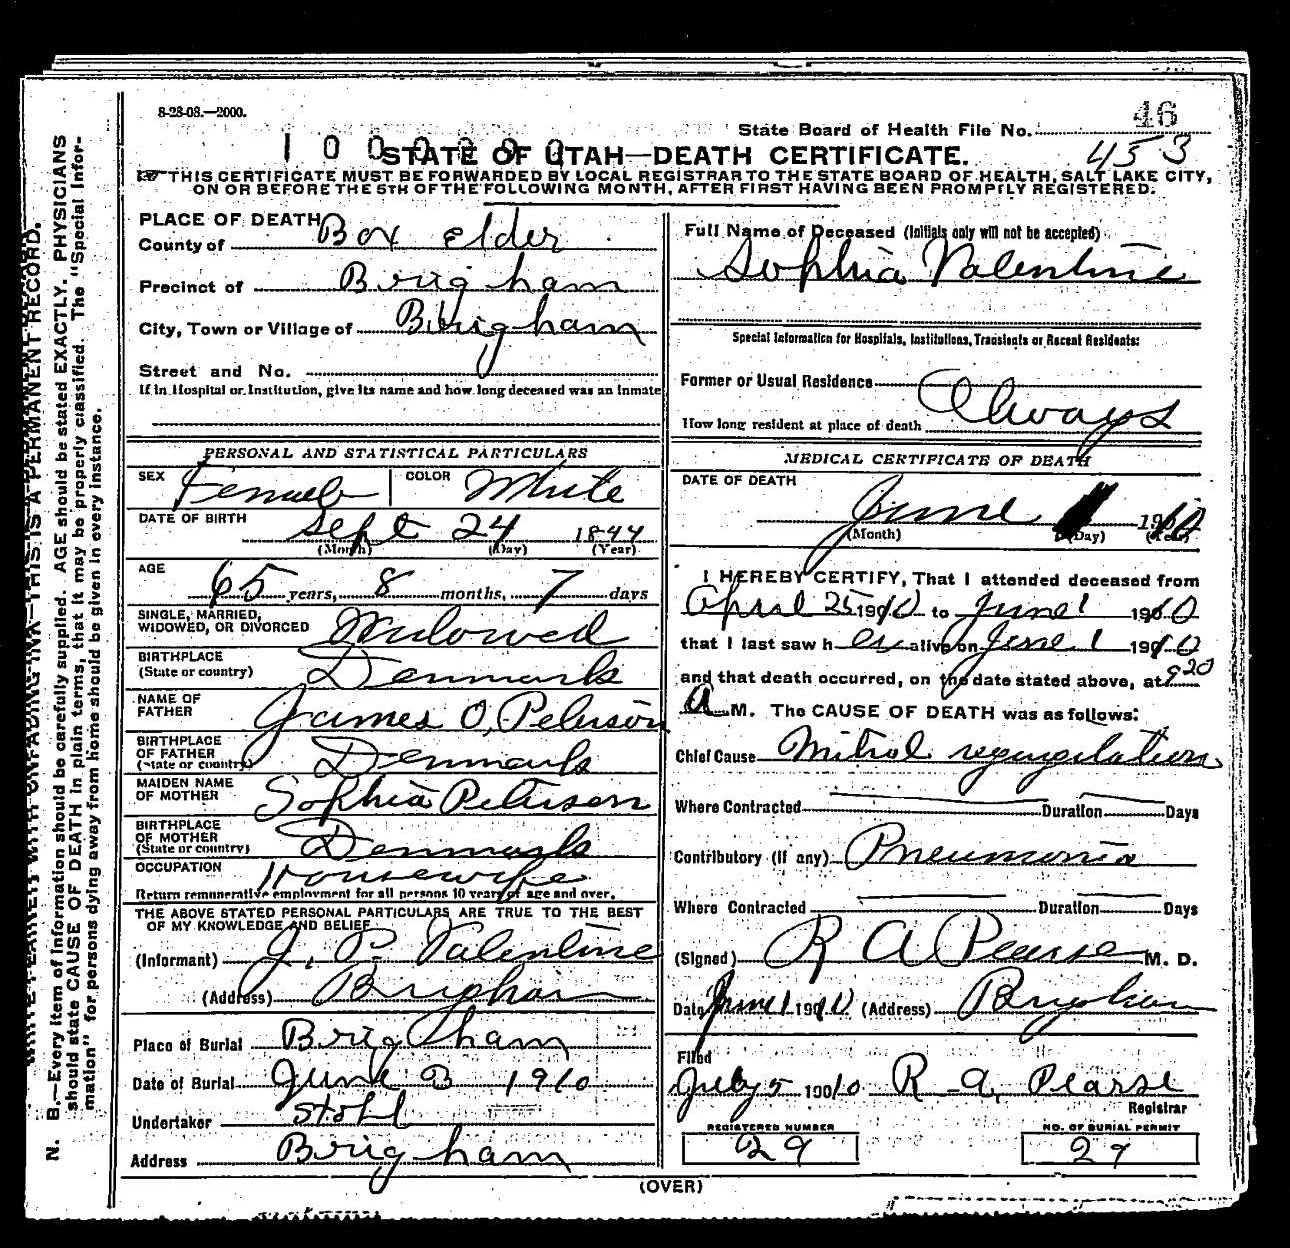 8-28-08.—2000.
46
State Board of Health File No.
453
STATE OF UTAH—DEATH CERTIFICATE.
THIS CERTIFICATE MUST BE FORWARDED BY LOCAL REGISTRAR TO THE STATE BOARD OF HEALTH, SALT LAKE CITY,
ON OR BEFORE THE 5TH OF THE FOLLOWING MONTH, AFTER FIRST HAVING BEEN PROMPTLY REGISTERED.
PLACE OF DEATH
County of Box Elder
Precinct of Brigham
City, Town or Village of Brigham
Street and No.
If in Hospital or Institution, give its name and how long deceased was an inmate
PERSONAL AND STATISTICAL PARTICULARS
SEX Female COLOR White
DATE OF BIRTH Sept 24 1844
(Month) (Day) (Year)
AGE
65 years, 8 months, 7 days
SINGLE, MARRIED,
WIDOWED, OR DIVORCED Widowed
BIRTHPLACE
(State or country) Denmark
NAME OF
FATHER James O. Peterson
BIRTHPLACE
OF FATHER
(State or country) Denmark
MAIDEN NAME
OF MOTHER Sophia Peterson
BIRTHPLACE
OF MOTHER
(State or country) Denmark
OCCUPATION Housewife
Return remunerative employment for all persons 10 years of age and over.
THE ABOVE STATED PERSONAL PARTICULARS ARE TRUE TO THE BEST
OF MY KNOWLEDGE AND BELIEF
(Informant) J. P. Valentine
(Address) Brigham
Place of Burial Brigham
Date of Burial June 3 1910
Undertaker Stohl
Address Brigham
Full Name of Deceased (Initials only will not be accepted)
Sophia Valentine
Special Information for Hospitals, Institutions, Transients or Recent Residents:
Former or Usual Residence
How long resident at place of death Always
MEDICAL CERTIFICATE OF DEATH
DATE OF DEATH
June 1910
(Month) (Day) (Year)
I HEREBY CERTIFY, That I attended deceased from
April 25 1910 to June 1 1910
that I last saw her alive on June 1 1910
and that death occurred, on the date stated above, at 920
A M. The CAUSE OF DEATH was as follows:
Chief Cause Mitral regurgitation
Where Contracted Duration Days
Contributory (if any) Pneumonia
Where Contracted Duration Days
(Signed) R A Pearse M. D.
Date June 1 1910 (Address) Brigham
Filed
July 5 1910 R. A. Pearse
Registrar
REGISTERED NUMBER
29
NO. OF BURIAL PERMIT
29
(OVER)
WRITE PLAINLY WITH UNFADING INK—THIS IS A PERMANENT RECORD.
N. B.—Every item of information should be carefully supplied. AGE should be stated EXACTLY. PHYSICIANS
should state CAUSE OF DEATH in plain terms, that it may be properly classified. The "Special Infor-
mation" for persons dying away from home should be given in every instance.